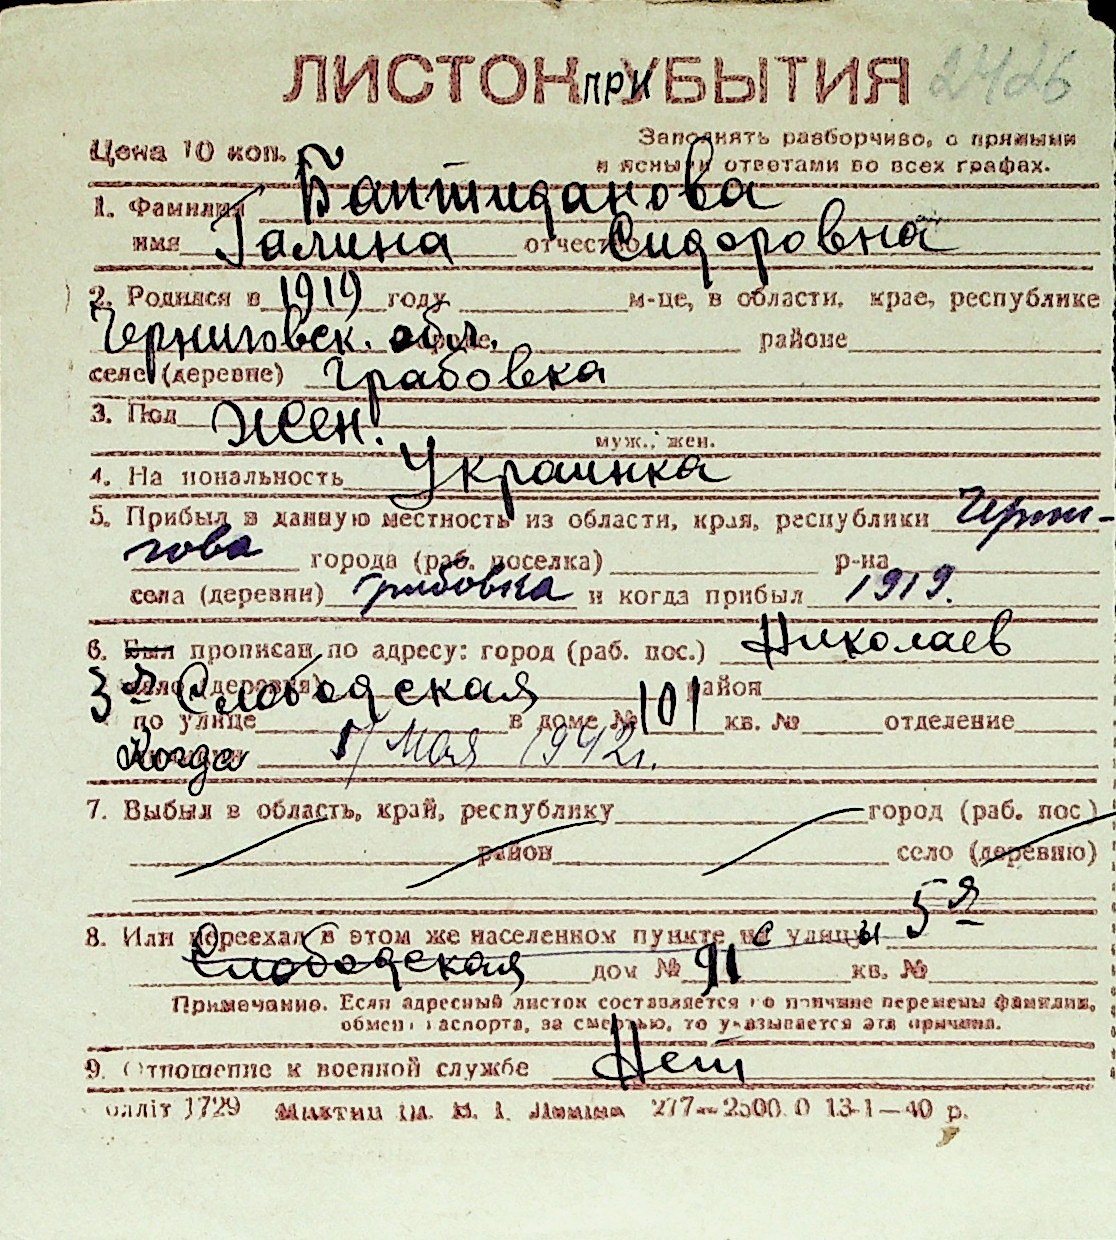 ЛИСТОК ПРИБЫТИЯ 2426
Цена 10 коп. Заполнять разборчиво, с прямыми
и ясными ответами во всех графах.
1. Фамилия Баптиданова
имя Галина отчество Сидоровна
2. Родился в 1919 году м-це, в области, крае, республике
Черниговск. обл. районе
селе (деревне) Грабовка
3. Пол Жен.
муж., жен.
4. Национальность Украинка
5. Прибыл в данную местность из области, края, республики Черни-
гова города (раб. поселка) р-на
села (деревни) Грабовка и когда прибыл 1919.
6. Был прописан по адресу: город (раб. пос.) Николаев
3я Слободская район
по улице в доме № 101 кв. № отделение
Когда 17 мая 1942г.
7. Выбыл в область, край, республику город (раб. пос.)
район село (деревню)
8. Или переехал в этом же населенном пункте с улицы 5я
Слободская дом № 91 кв. №
Примечание. Если адресный листок составляется по причине перемены фамилии,
обмена паспорта, за смертью, то указывается эта причина.
9. Отношение к военной службе Нет
1729 277—2500.0 13-1—40 р.